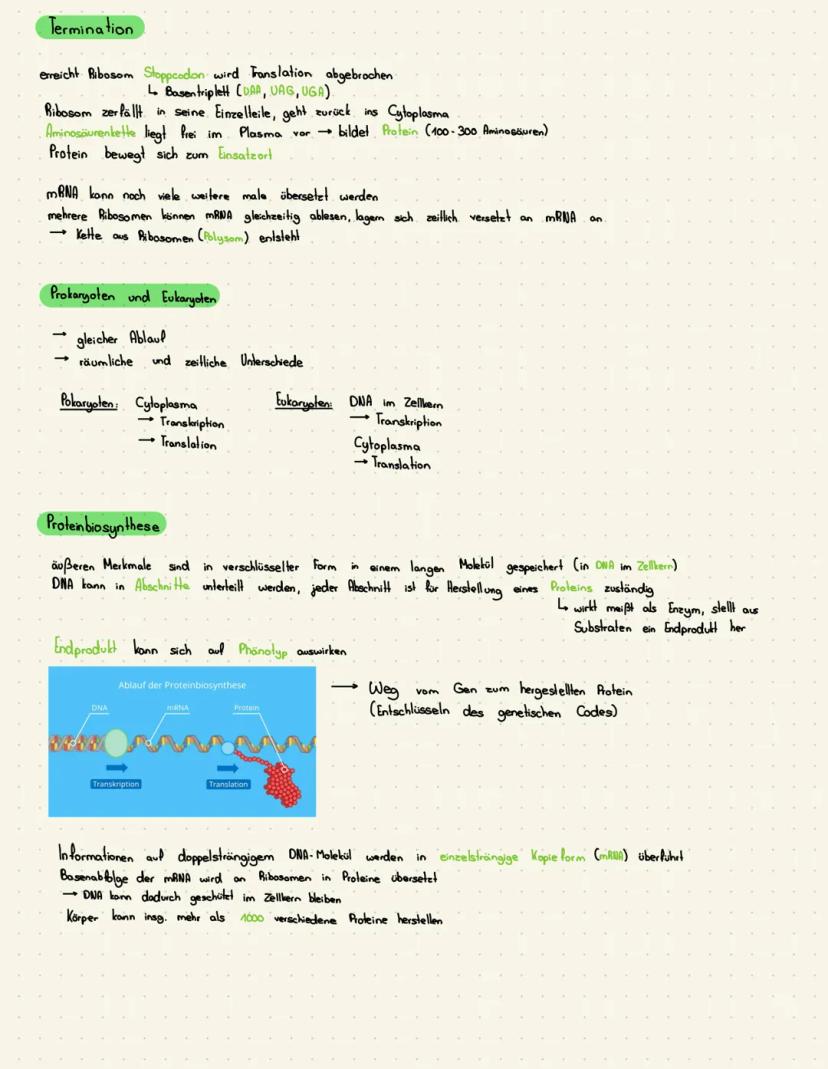 Termination
erreicht Ribosom Stoppcodon wird Translation abgebrochen
↳ Basentriplett (UAA, UAG, UGA)
Ribosom zerfällt in seine Einzelteile, geht zurück ins Cytoplasma
Aminosäurenkette liegt frei im Plasma vor → bildet Protein (100-300 Aminosäuren)
Protein bewegt sich zum Einsatzort
mRNA kann noch viele weitere male übersetzt werden
mehrere Ribosomen können mRNA gleichzeitig ablesen, lagern sich zeitlich versetzt an mRNA an
→ Kette aus Ribosomen (Polysom) entsteht
Prokaryoten und Eukaryoten
→ gleicher Ablauf
→ räumliche und zeitliche Unterschiede
Pokaryoten: Cytoplasma
→ Transkription
→ Translation
Eukaryoten: DNA im Zellkern
→ Transkription
Cytoplasma
→ Translation
Proteinbiosynthese
äußeren Merkmale sind in verschlüsselter Form in einem langen Molekül gespeichert (in DNA im Zellkern)
DNA kann in Abschnitte unterteilt werden, jeder Abschnitt ist für Herstellung eines Proteins zuständig
↳ wirkt meißt als Enzym, stellt aus
Substraten ein Endprodukt her
Endprodukt kann sich auf Phänotyp auswirken
Ablauf der Proteinbiosynthese
DNA mRNA Protein
Transkription Translation
→ Weg vom Gen zum hergestellten Protein
(Entschlüsseln des genetischen Codes)
Informationen auf doppelsträngigem DNA-Molekül werden in einzelsträngige Kopieform (mRNA) überführt
Basenabfolge der mRNA wird an Ribosomen in Proteine übersetzt
→ DNA kann dadurch geschützt im Zellkern bleiben
Körper kann insg. mehr als 1000 verschiedene Proteine herstellen